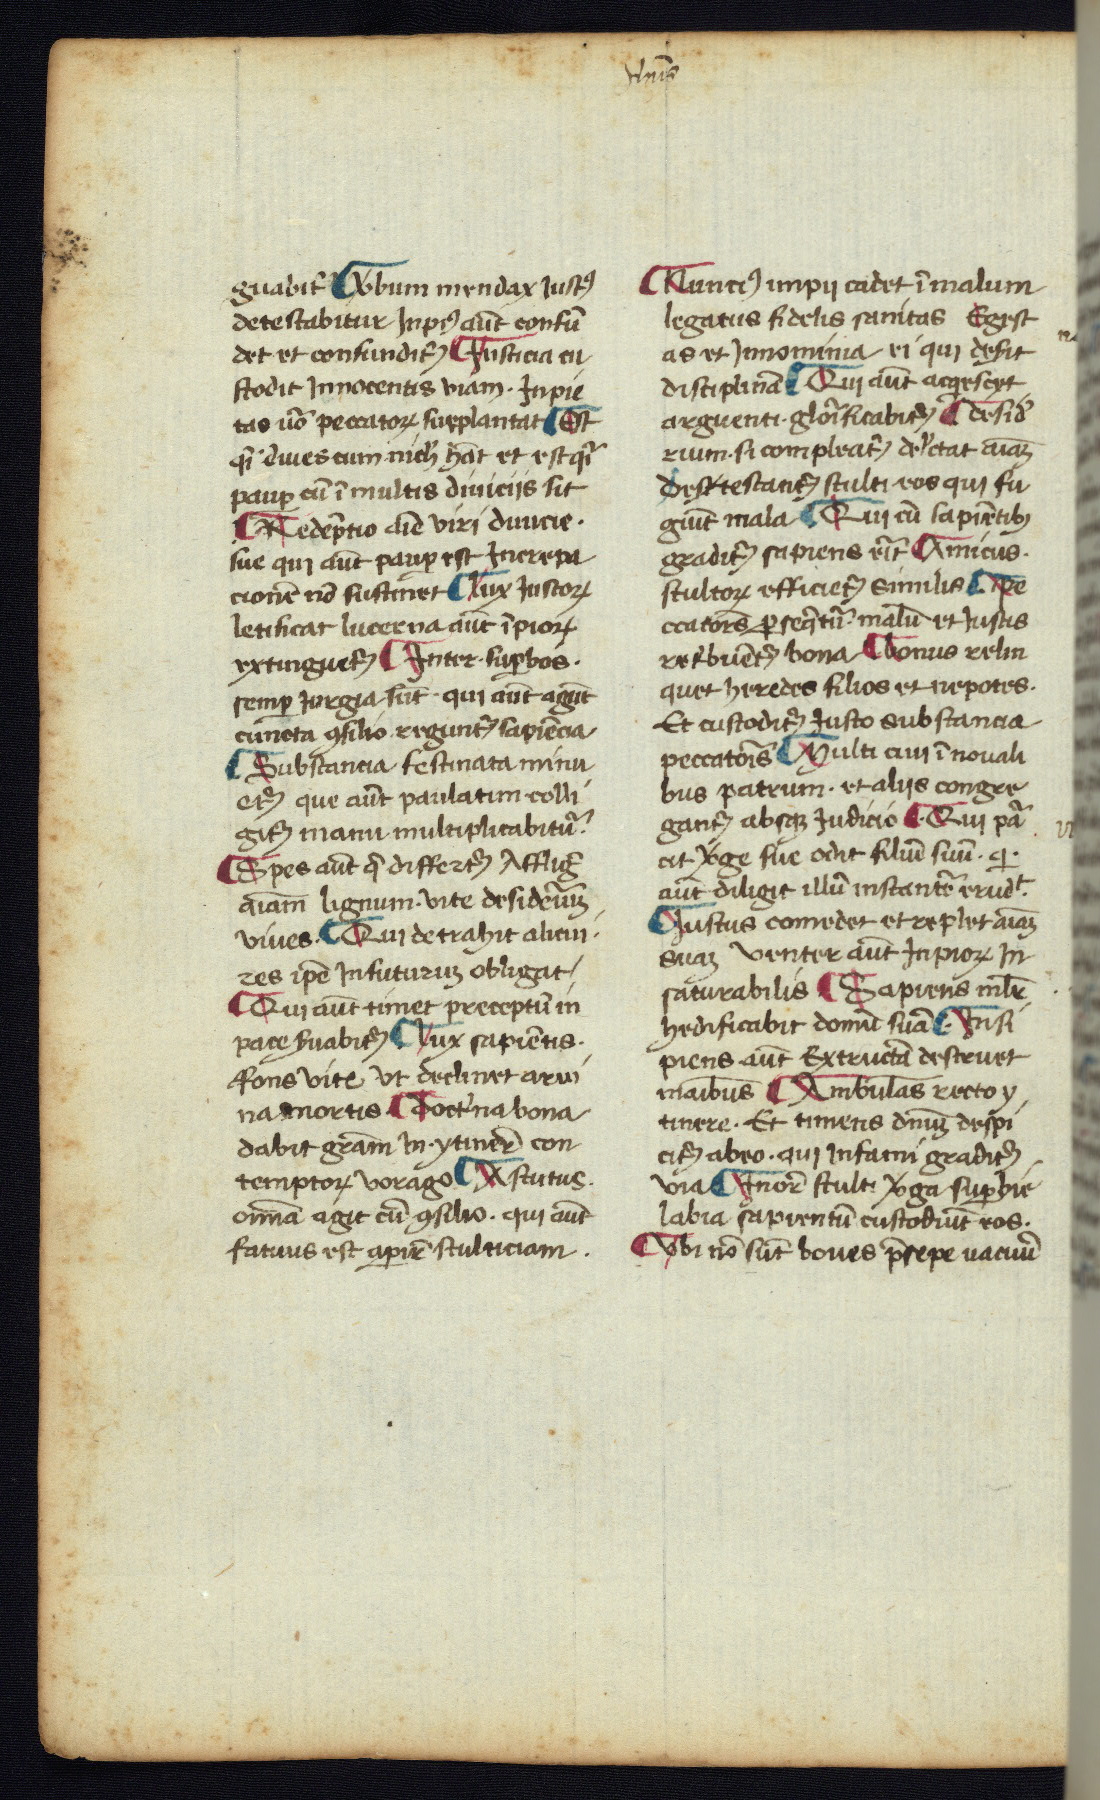 guabit᷑ ¶ Vbum mendax Justꝰ
detestabitur Inpiꝰ aūt confū
det et confunditꝭ ¶ Justicia cu
stodit Innocentis viam · Inpie
tas uō peccatoꝝ supplantat ¶ Est
qͥ diues cum nicħ hāt et est qͥ
paup cū ī multis diuicijs sit
¶ Redēptio aīe viri diuicie ·
sue qui aūt paup est Increpa
cionē nō sustinet ¶ Lux Justoꝝ
letificat lucerna aūt īpioꝝ
extinguetꝭ ¶ Inter supbos ·
semp Jurgia sūt · qui aūt agūt
cuncta ꝯsilio reguntꝭ sapiēcia
¶ Substancia festinata minu
etꝭ que aūt paulatim colli
gitꝭ manu multiplicabitu᷑ ·
¶ Spes aūt q̄ differtꝭ Affligꝭ
aīam lignum · vite desideriū
viues · ¶ Qui detrahit alicui ·
res ipē Infuturum obligat
¶ Qui aūt timet preceptū in
pace ſuabitꝭ ¶ Lux sapiētis ·
ffons vite vt declinet arui
na mortis ¶ Doctͥna bona
dabit grām In · ytinerē con
temptoꝝ vorago ¶ Astutus ·
omīa agit cū ꝯsilio · qui aūt
fatuus est apirē stulticiam ·
¶ Nunciꝰ impij cadet ī malum
legatus fidelis sanitas Egest
as et Innominia ei qui desit
disciplinā ¶ Qui aūt acqescyt
arguenti · glorīficabitꝭ ¶ Desidͥ
rium · si compleatꝭ delͨtat aīaꝫ
Detestantꝭ stulti eos qui fu
giūt mala ¶ Qui cū sapiētibꝫ
graditꝭ sapiens erit ¶ Amicus ·
stultoꝝ efficietꝭ similis ¶ Pe
ccatorēs ꝑseq̄ntu᷑ · malū et Justis
retͥbuētꝭ bona ¶ bonus relin
quet heredes filios et nepotes ·
Et custoditꝭ Justo substancia
peccatorīs ¶ Multi ciui ī nouali
bus patrum · et alijs congre
gantꝭ absqꝫ Judicio ¶ Qui pͣ
cit v̄ge sue odit filiū suū · q ·
aūt diligit illū instantē᷑ erudͭ ·
¶ Justus comedet et replet aīaꝫ
suaꝫ venter aūt Inpioꝝ In
saturabilis ¶ Sapiens mͣlͥe
hedificabit domū suā ¶ Insi
piens aūt Extructā destruet
maībus ¶ Ambulās recto y
tinere · Et timens dnūꝫ despi
citꝭ abeo · qui Infami graditꝭ
via ¶ Inorē stulti v̄ga supbie
labia sapientū custodiūt eos ·
¶ Vbi nō sūt boues p̄sepe uacuū